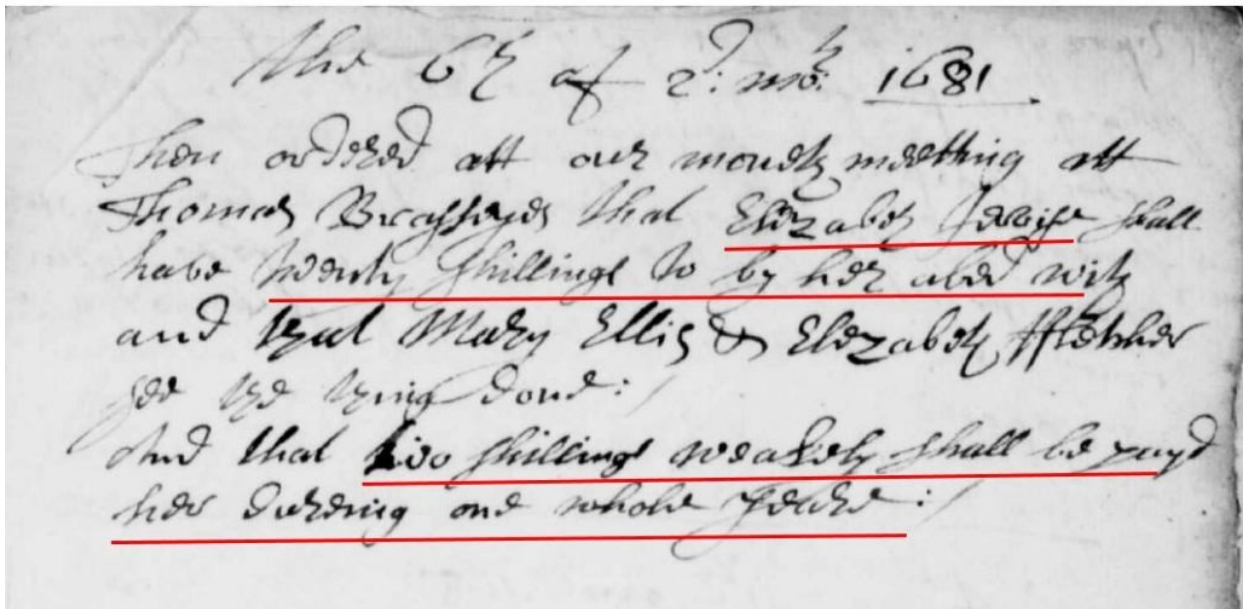 The 6th of 2d: moth: 1681
Then ordered att our moneth meetting att
Thomas Brasseyes that Elizabeth Jervise shall
have twenty shillings to by her abed with
and that Mary Ellis & Elezabeth ffletcher
see the thing done:/
And that two shillings weakely shall be payd
her dureing one whole yeare:/